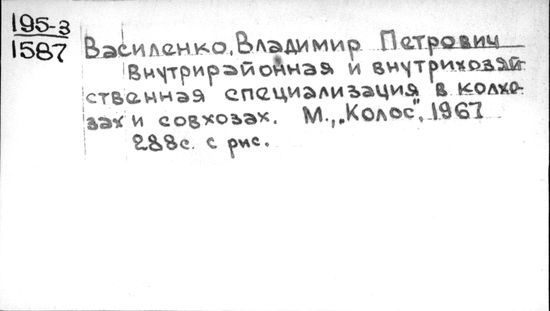 195-3
1587
Василенко, Владимир Петрович
Внутрирайонная и внутрихозяй-
ственная специализация в колхо-
зах и совхозах. М., „Колос", 1967
288с. с рис.